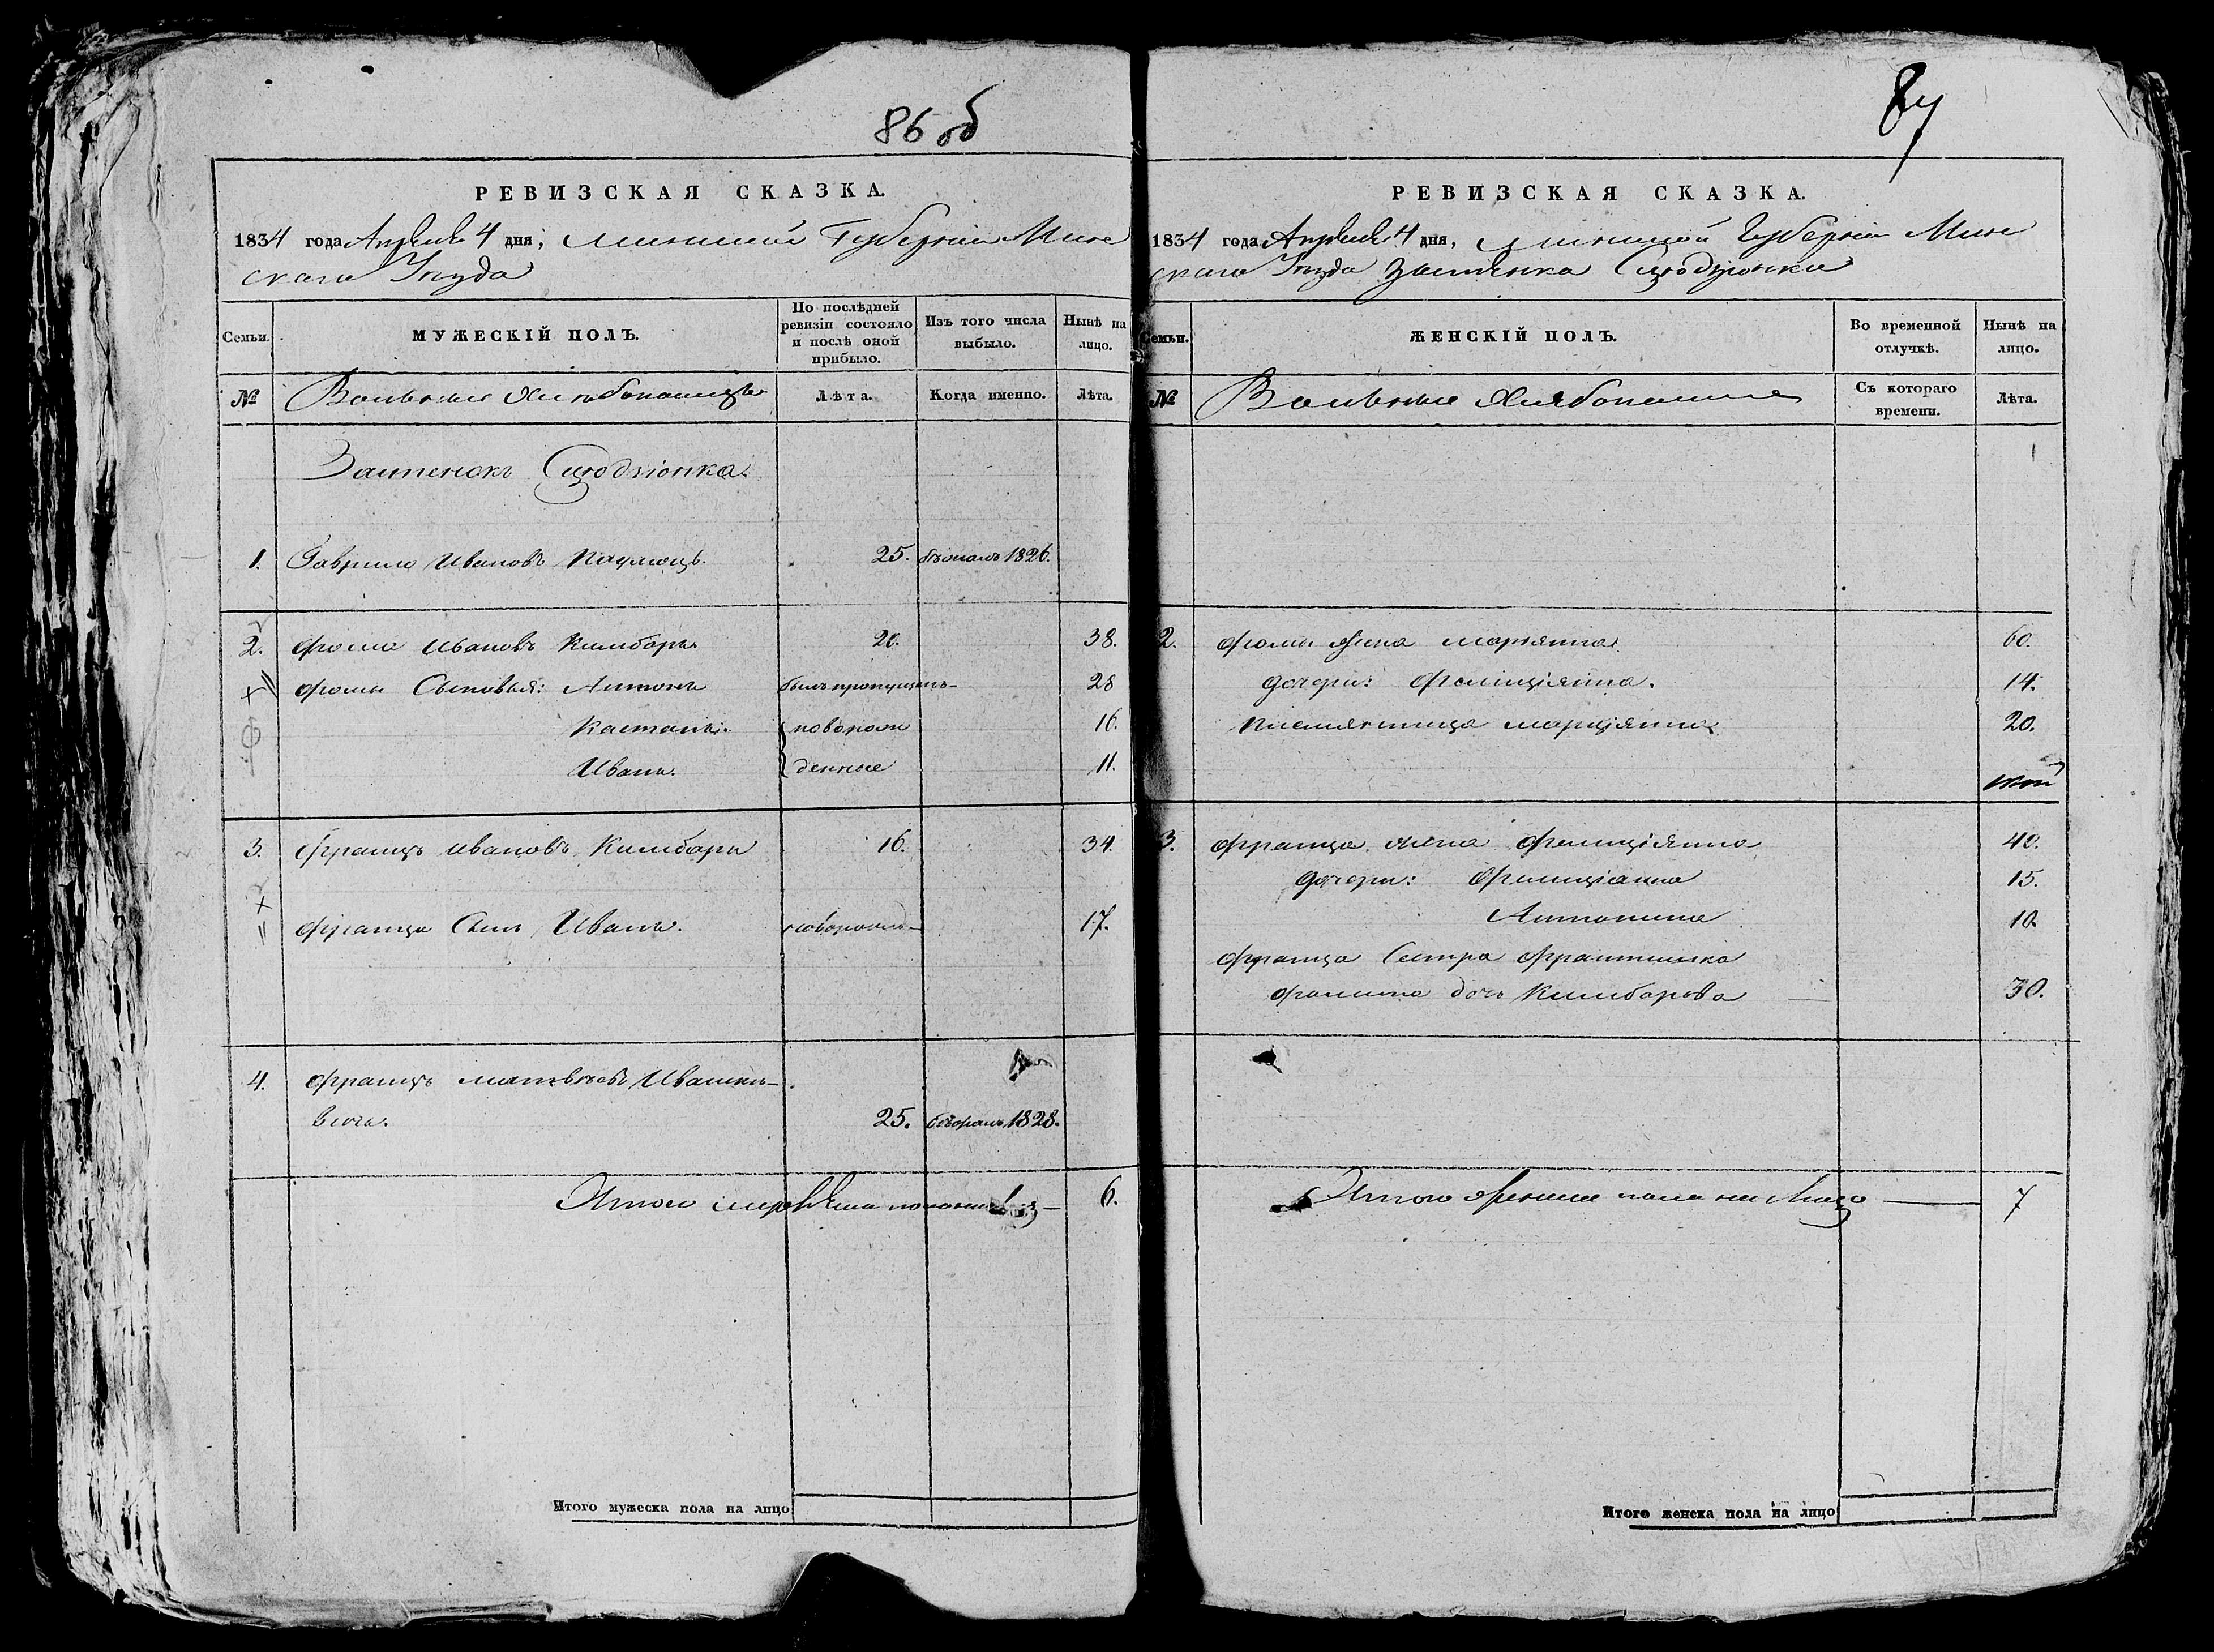 86 об
РЕВИЗСКАЯ СКАЗКА.
1834 года Апреля 4 дня, Минской Губернии Мин
скаго Уезда
Семьи.
МУЖЕСКІЙ ПОЛЪ.
По послѣдней ревизіи состояло и послѣ оной прибыло.
Изъ того числа выбыло.
Нынѣ на лицо.
№
Вольные Хлебопашцы
Лѣта.
Когда именно.
Лѣта.
Застенокъ Сцюдзіонка.
1. Гаврило Ивановъ 25. 1826.
2. Фома Ивановъ Кимбаръ 20. 38.
Фомы Сыновья: Антонъ былъ пропущенъ 28
Кастанъ. новорож 16.
Иванъ. денные 11.
3. Францъ Ивановъ Кимбаръ 16. 34.
Франца Сынъ Иванъ. новорожд 17.
4. Францъ Матвеевъ Ивашке-
вичъ. 25. 1828.
Итого мужеска пола на лицо — 6.
Итого мужеска пола на лицо
87
РЕВИЗСКАЯ СКАЗКА.
1834 года Апреля 4 дня, Минской Губернии Мин
скаго Уезда Застенка Сцюдзіонки
Семьи.
ЖЕНСКІЙ ПОЛЪ.
Во временной отлучкѣ.
Нынѣ на лицо.
№
Вольные Хлебопашцы
Съ котораго времени.
Лѣта.
2. Фомы Жена Марьянна 60.
Дочери: Фелиціянна. 14.
Племянница Марціянна 20.
3. Франца Жена Фелиціянна 40.
Дочери: Фелиціанна 15.
Антонина 10.
Франца Сестра Франтишка
дочь Кимбарова 30.
Итого Женска пола на Лицо — 7
Итого женска пола на лицо